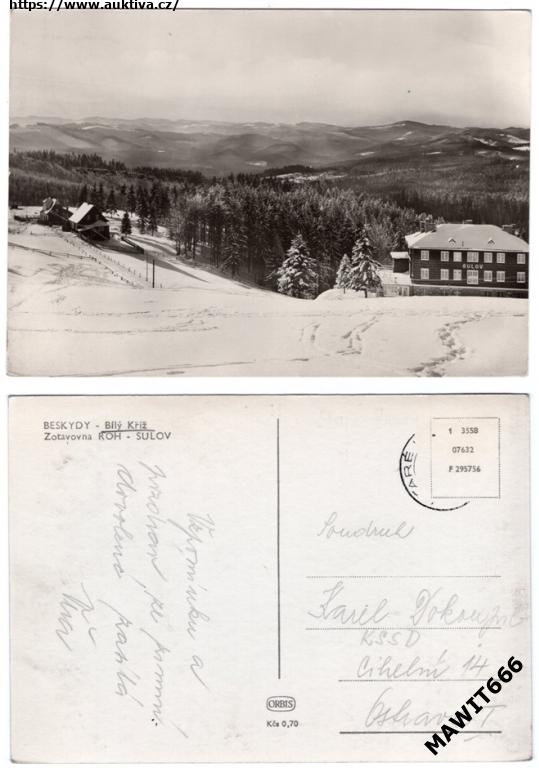 https://www.auktiva.cz/
SULOV
BESKYDY - Bílý Kříž
Zotavovna ROH - SULOV
Vzpomínku a
pozdrav ze zimní
dovolené
1 355B
07632
F 295756
Soudruh
Karel
KSSD
Cihelní 14
Ostrava I
ORBIS
Kčs 0,70
MAWIT666